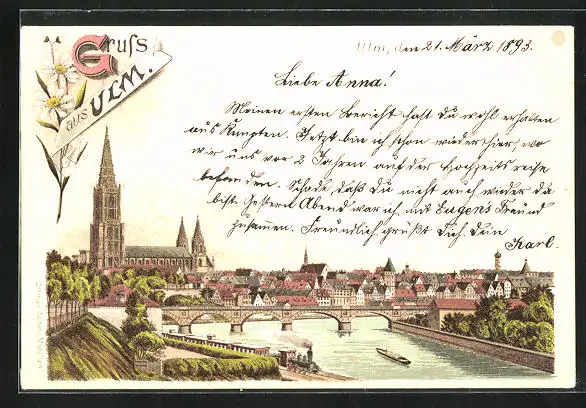 Gruß
aus ULM.
Ulm, den 21. März 1893.
Liebe Anna!
Meinen ersten Bericht hast Du wohl erhalten
aus Kempten. Jetzt bin ich schon wieder hier, wo
wir uns vor 2 Jahren auf der Hochzeitsreise
befanden. Schade daß Du nicht auch wieder da
bist. Gestern Abend war ich mit Eugens Freund
zusammen. Freundlich grüßt Dich Dein
Karl.